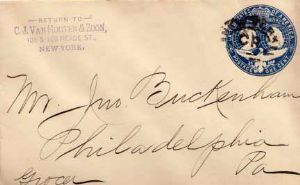 RETURN TO
C. J. VAN HOUTEN & ZOON,
READE ST.,
NEW-YORK.
Mr. Jno. Buckenham
Philadelphia
Pa
Grocer